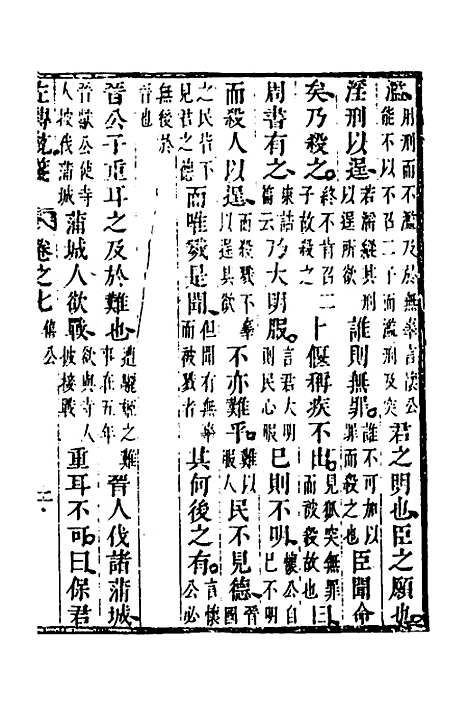 濫用刑而不濫及於無辜言懷公能不以不召二子而濫刑及突君之明也臣之願也
淫刑以逞若濫縱其刑以逞所欲誰則無罪誰不可加以罪而殺之也臣聞命
矣乃殺之終不肯召二子故殺之卜偃稱疾不出見狐突無罪而被殺故也曰
周書有之康誥篇云乃大明服言君大明則民心服已則不明懷公自已不明
而殺人以逞而殺戮不辜以逞其欲不亦難乎難以服人民不見德晉國
之民皆不見君之德而唯戮是聞但聞有無辜而被戮者其何後之有言懷公必
無後於晉也
晉公子重耳之及於難也遭驪姬之難事在五年晉人伐諸蒲城
晉獻公使寺人披伐蒲城蒲城人欲戰欲與寺人披接戰重耳不可曰保君
左傳統箋 卷之七 僖公